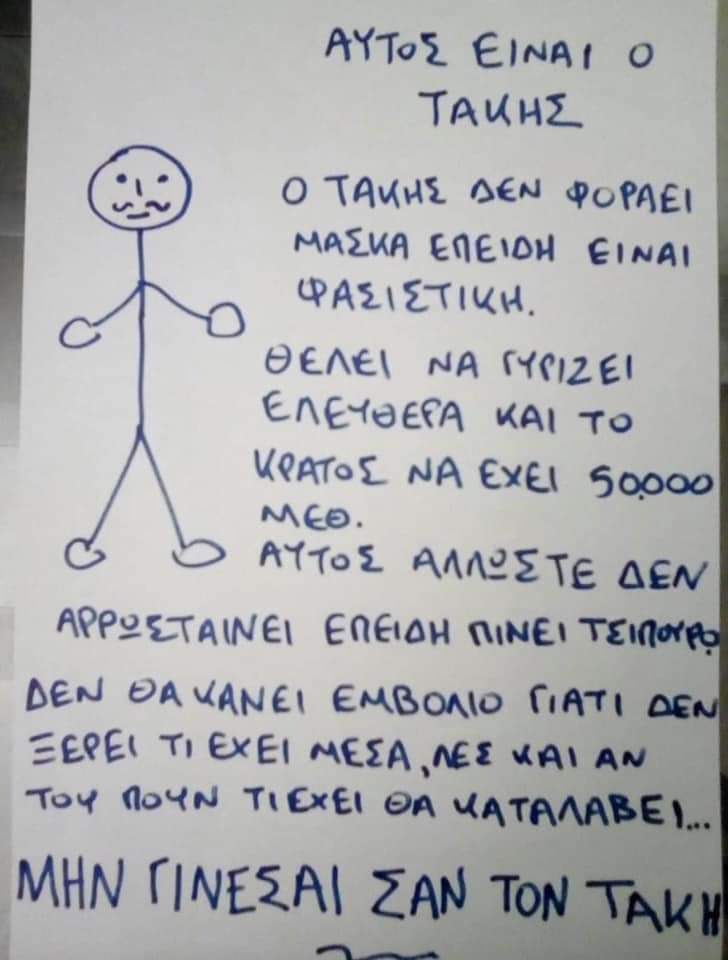 ΑΥΤΟΣ ΕΙΝΑΙ Ο
ΤΑΚΗΣ
Ο ΤΑΚΗΣ ΔΕΝ ΦΟΡΑΕΙ
ΜΑΣΚΑ ΕΠΕΙΔΗ ΕΙΝΑΙ
ΦΑΣΙΣΤΙΚΗ.
ΘΕΛΕΙ ΝΑ ΓΥΡΙΖΕΙ
ΕΛΕΥΘΕΡΑ ΚΑΙ ΤΟ
ΚΡΑΤΟΣ ΝΑ ΕΧΕΙ 50.000
ΜΕΘ.
ΑΥΤΟΣ ΑΛΛΩΣΤΕ ΔΕΝ
ΑΡΡΩΣΤΑΙΝΕΙ ΕΠΕΙΔΗ ΠΙΝΕΙ ΤΣΙΠΟΥΡΟ.
ΔΕΝ ΘΑ ΚΑΝΕΙ ΕΜΒΟΛΙΟ ΓΙΑΤΙ ΔΕΝ
ΞΕΡΕΙ ΤΙ ΕΧΕΙ ΜΕΣΑ, ΛΕΣ ΚΑΙ ΑΝ
ΤΟΥ ΠΟΥΝ ΤΙ ΕΧΕΙ ΘΑ ΚΑΤΑΛΑΒΕΙ...
ΜΗΝ ΓΙΝΕΣΑΙ ΣΑΝ ΤΟΝ ΤΑΚΗ